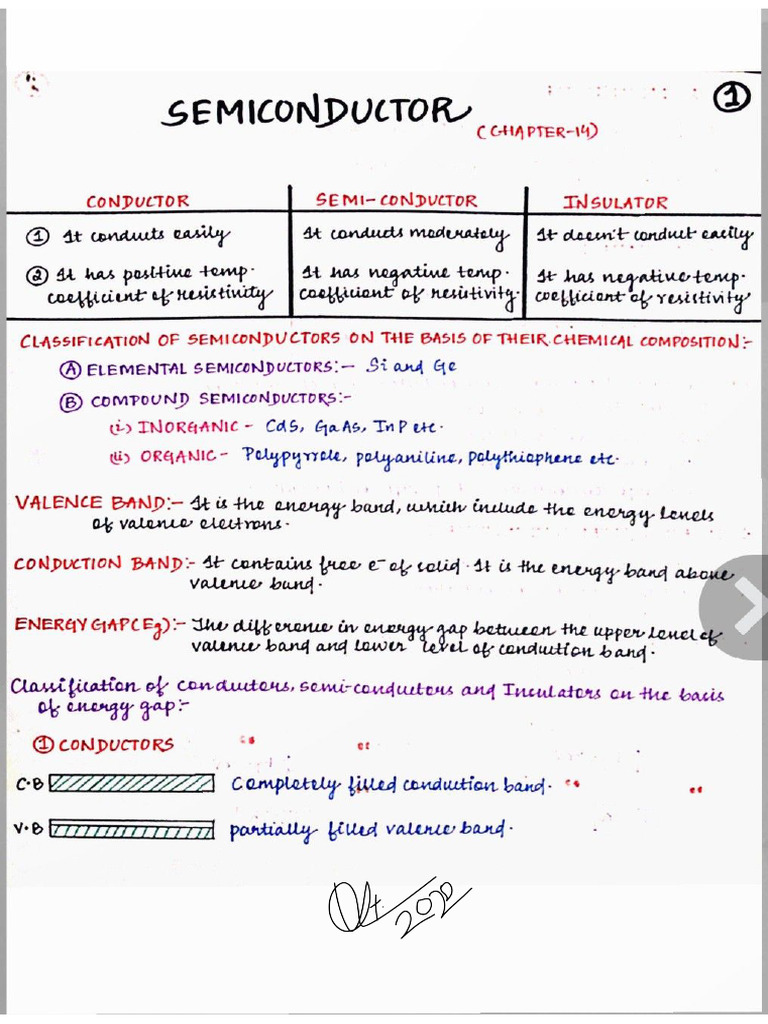 SEMICONDUCTOR
(CHAPTER-14)
1
CONDUCTOR SEMI-CONDUCTOR INSULATOR
① It conducts easily It conducts moderately It doesn't conduct easily
② It has positive temp. It has negative temp. It has negative temp.
coefficient of resistivity coefficient of resistivity. coefficient of resistivity
CLASSIFICATION OF SEMICONDUCTORS ON THE BASIS OF THEIR CHEMICAL COMPOSITION:-
Ⓐ ELEMENTAL SEMICONDUCTORS:- Si and Ge
Ⓑ COMPOUND SEMICONDUCTORS:-
(i) INORGANIC - CdS, GaAs, InP etc.
(ii) ORGANIC - Polypyrrole, polyaniline, polythiophene etc.
VALENCE BAND:- It is the energy band, which include the energy levels
of valence electrons.
CONDUCTION BAND:- It contains free e⁻ of solid. It is the energy band above
valence band.
ENERGY GAP(Eg):- The difference in energy gap between the upper level of
valence band and lower level of conduction band.
Classification of conductors, semi-conductors and Insulators on the basis
of energy gap:-
① CONDUCTORS
C.B Completely filled conduction band.
V.B partially filled valence band.
2020